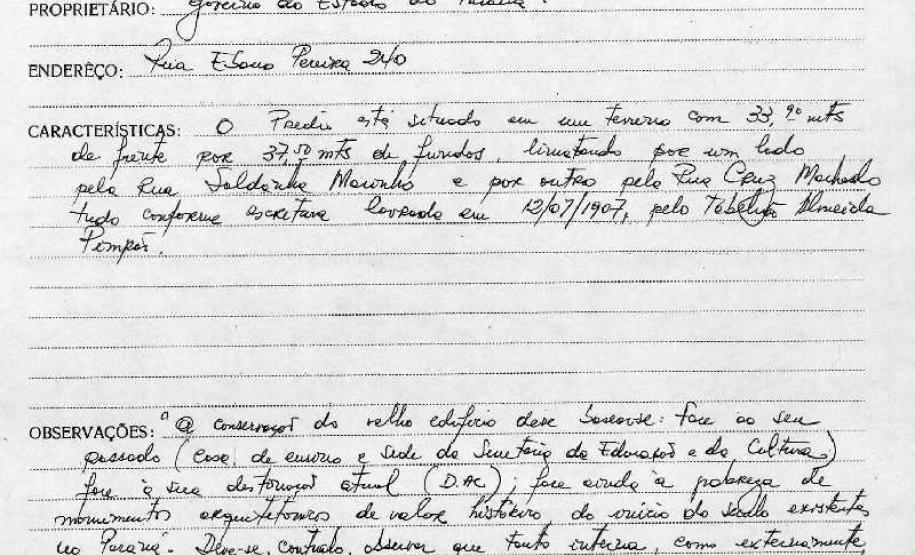 PROPRIETÁRIO: Governo do Estado do Paraná.
ENDERÊÇO: Rua Ebano Pereira 240
CARACTERÍSTICAS: O Predio está situado em um terreno com 33,90 mts
de frente por 37,50 mts de fundos, limitando por um lado
pela Rua Saldanha Marinho e por outro pela Rua Cruz Machado
tudo conforme escritura lavrada em 12/07/1907, pelo Tabelião Almeida
OBSERVAÇÕES: "A conservação do velho edifício deve basear-se: face ao seu
passado (casa de ensino e sede da Secretaria da Educação e da Cultura)
face à sua destinação atual (D.AC), face ainda à pobreza de
monumentos arquitetônicos de valor histórico do início do século existentes
no Paraná. Deve-se, contudo, observar que tanto interna, como externamente,